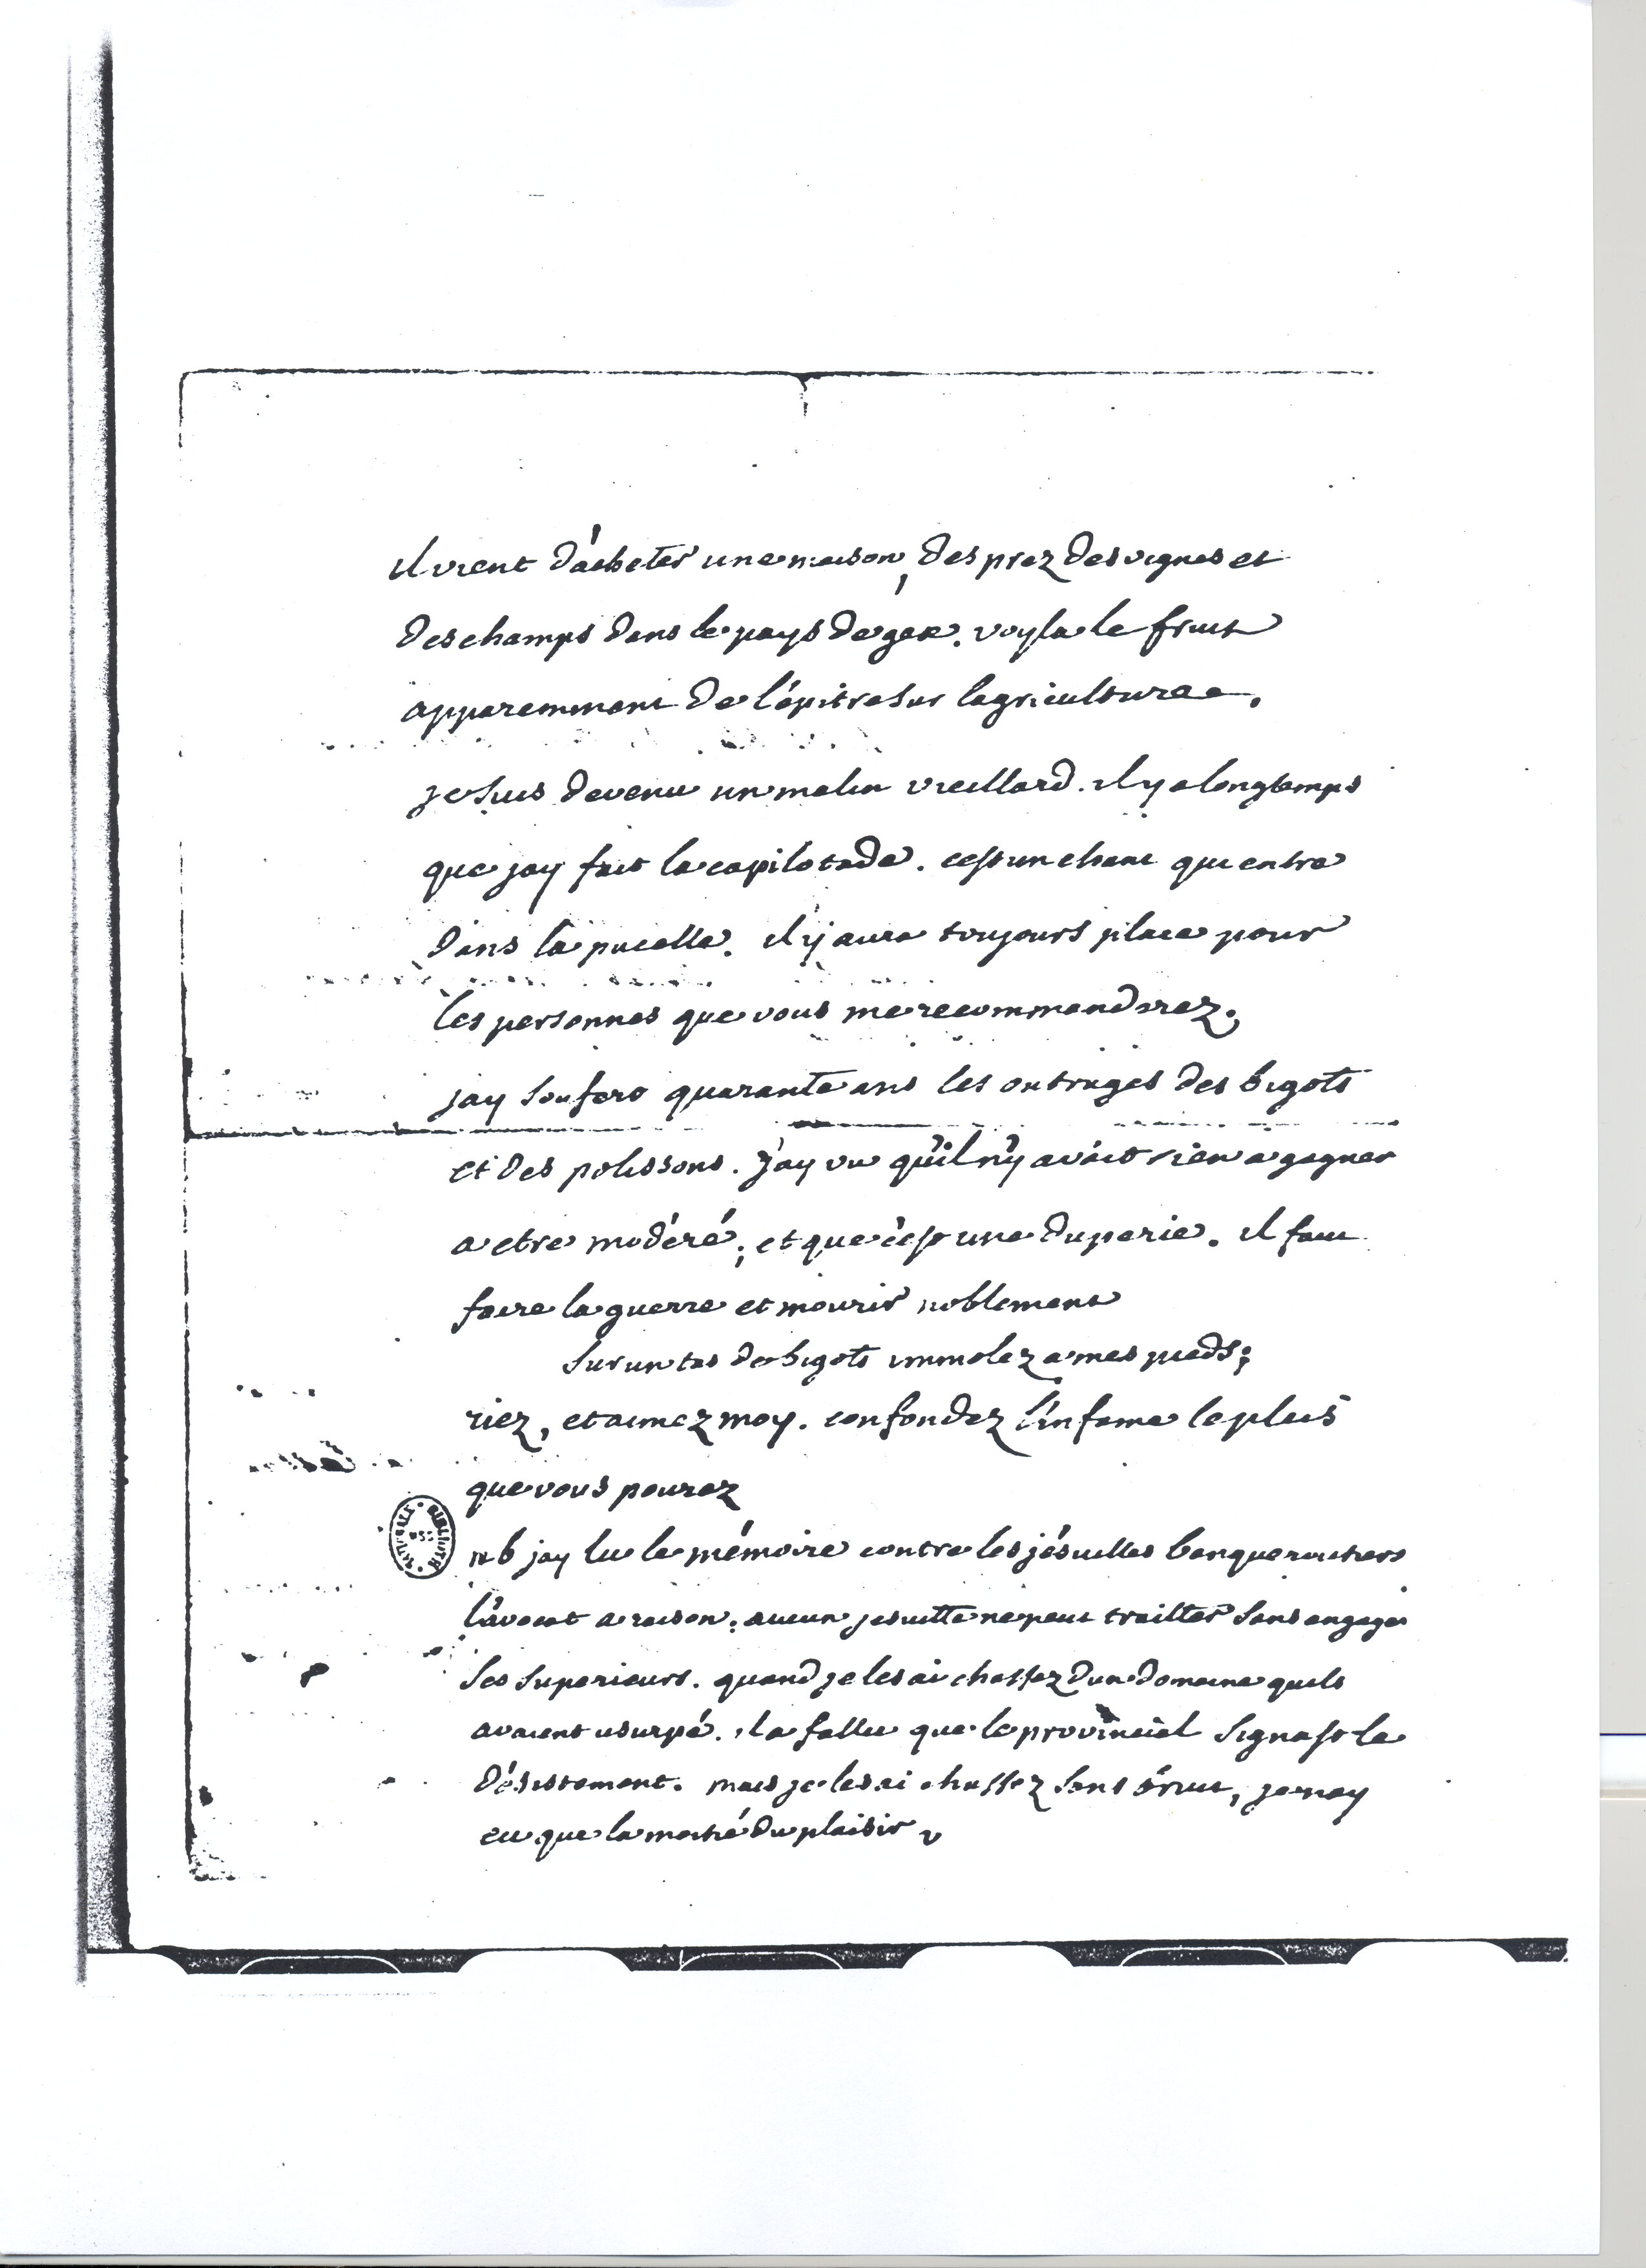 il vient d'acheter une maison, des prez des vignes et
des champs dans le pays de gex. voyla le fruit
apparemment de l'épitre sur lagriculture.
je suis devenu un malin vieillard. il y a longtemps
que jay fait la capilotade. cest un chant qui entre
dans la pucelle. il y aura toujours place pour
les personnes que vous me recommanderez.
jay soufert quarante ans les outrages des bigots
et des polissons. j'ay vu qu'il n'y avait rien a gagner
a etre modéré, et que c'est une duperie. il faut
faire la guerre et mourir noblement
sur un tas de bigots immolez a mes pieds;
riez, et aimez moy. confondez l'infame le plus
que vous pourez
nb jay lu le mémoire contre les jésuittes banqueroutiers
l'avocat a raison. aucun jesuitte ne peut traitter sans engager
ses superieurs. quand je les ai chassez dun domaine quils
avaient usurpé. il a fallu que le provincial signast le
désistement. mais je les ai chassez sans bruit, je nay
eu que la moitié du plaisir v